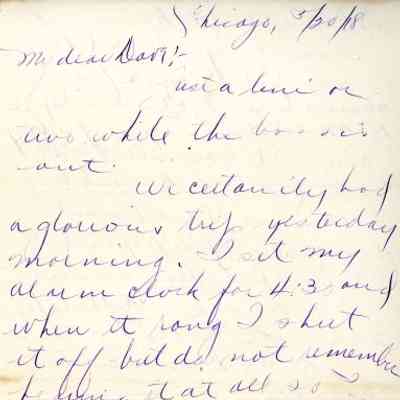 Chicago, 5/20/18
My dear Dave:-
Just a line or
two while the boss is
out.
We certainly had
a glorious trip yesterday
morning. I set my
alarm clock for 4:30 and
when it rang I shut
it off but do not remember
hearing it at all so I